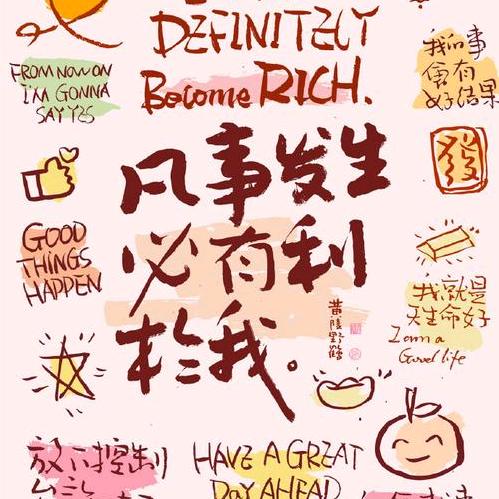 DEFINITELY
Become RICH.
FROM NOW ON
I'M GONNA
SAY YES
我的事
會有
好结果
發
凡事发生
必有利
於我。
GOOD
THINGS
HAPPEN
我就是
天生命好
I am a
Good life
放下控制
HAVE A GREAT
DAY AHEAD